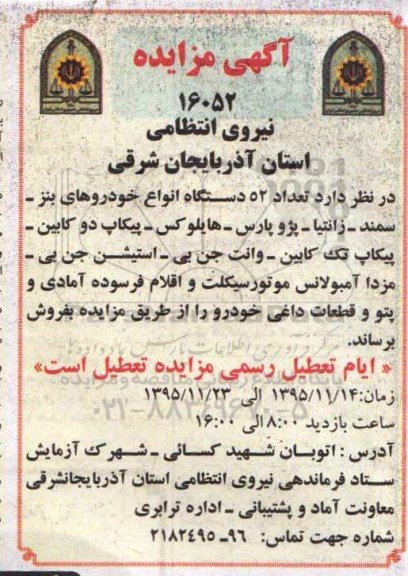 آگهی مزایده
۱۶۰۵۲
نیروی انتظامی
استان آذربایجان شرقی
در نظر دارد تعداد ۵۲ دستگاه انواع خودروهای بنز ـ
سمند ـ زانتیا ـ پژو پارس ـ هایلوکس ـ پیکاپ دو کابین ـ
پیکاپ تک کابین ـ وانت جن بی ـ استیشن جن بی ـ
مزدا آمبولانس موتورسیکلت و اقلام فرسوده آمادی و
پتو و قطعات داغی خودرو را از طریق مزایده بفروش
برساند.
« ایام تعطیل رسمی مزایده تعطیل است»
زمان:۱۳۹۵/۱۱/۱۴ الی ۱۳۹۵/۱۱/۲۳
ساعت بازدید ۸:۰۰ الی ۱۶:۰۰
آدرس : اتوبان شهید کسائی ـ شهرک آزمایش
ستاد فرماندهی نیروی انتظامی استان آذربایجانشرقی
معاونت آماد و پشتیبانی ـ اداره ترابری
شماره جهت تماس: ۹۶ـ ۲۱۸۲۴۹۵